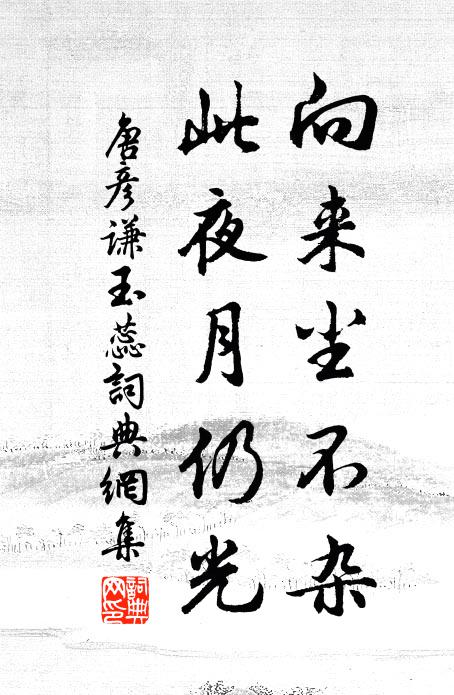 向来尘不杂
此夜月仍光
唐彦谦玉蕊詞典網集
詞典网印